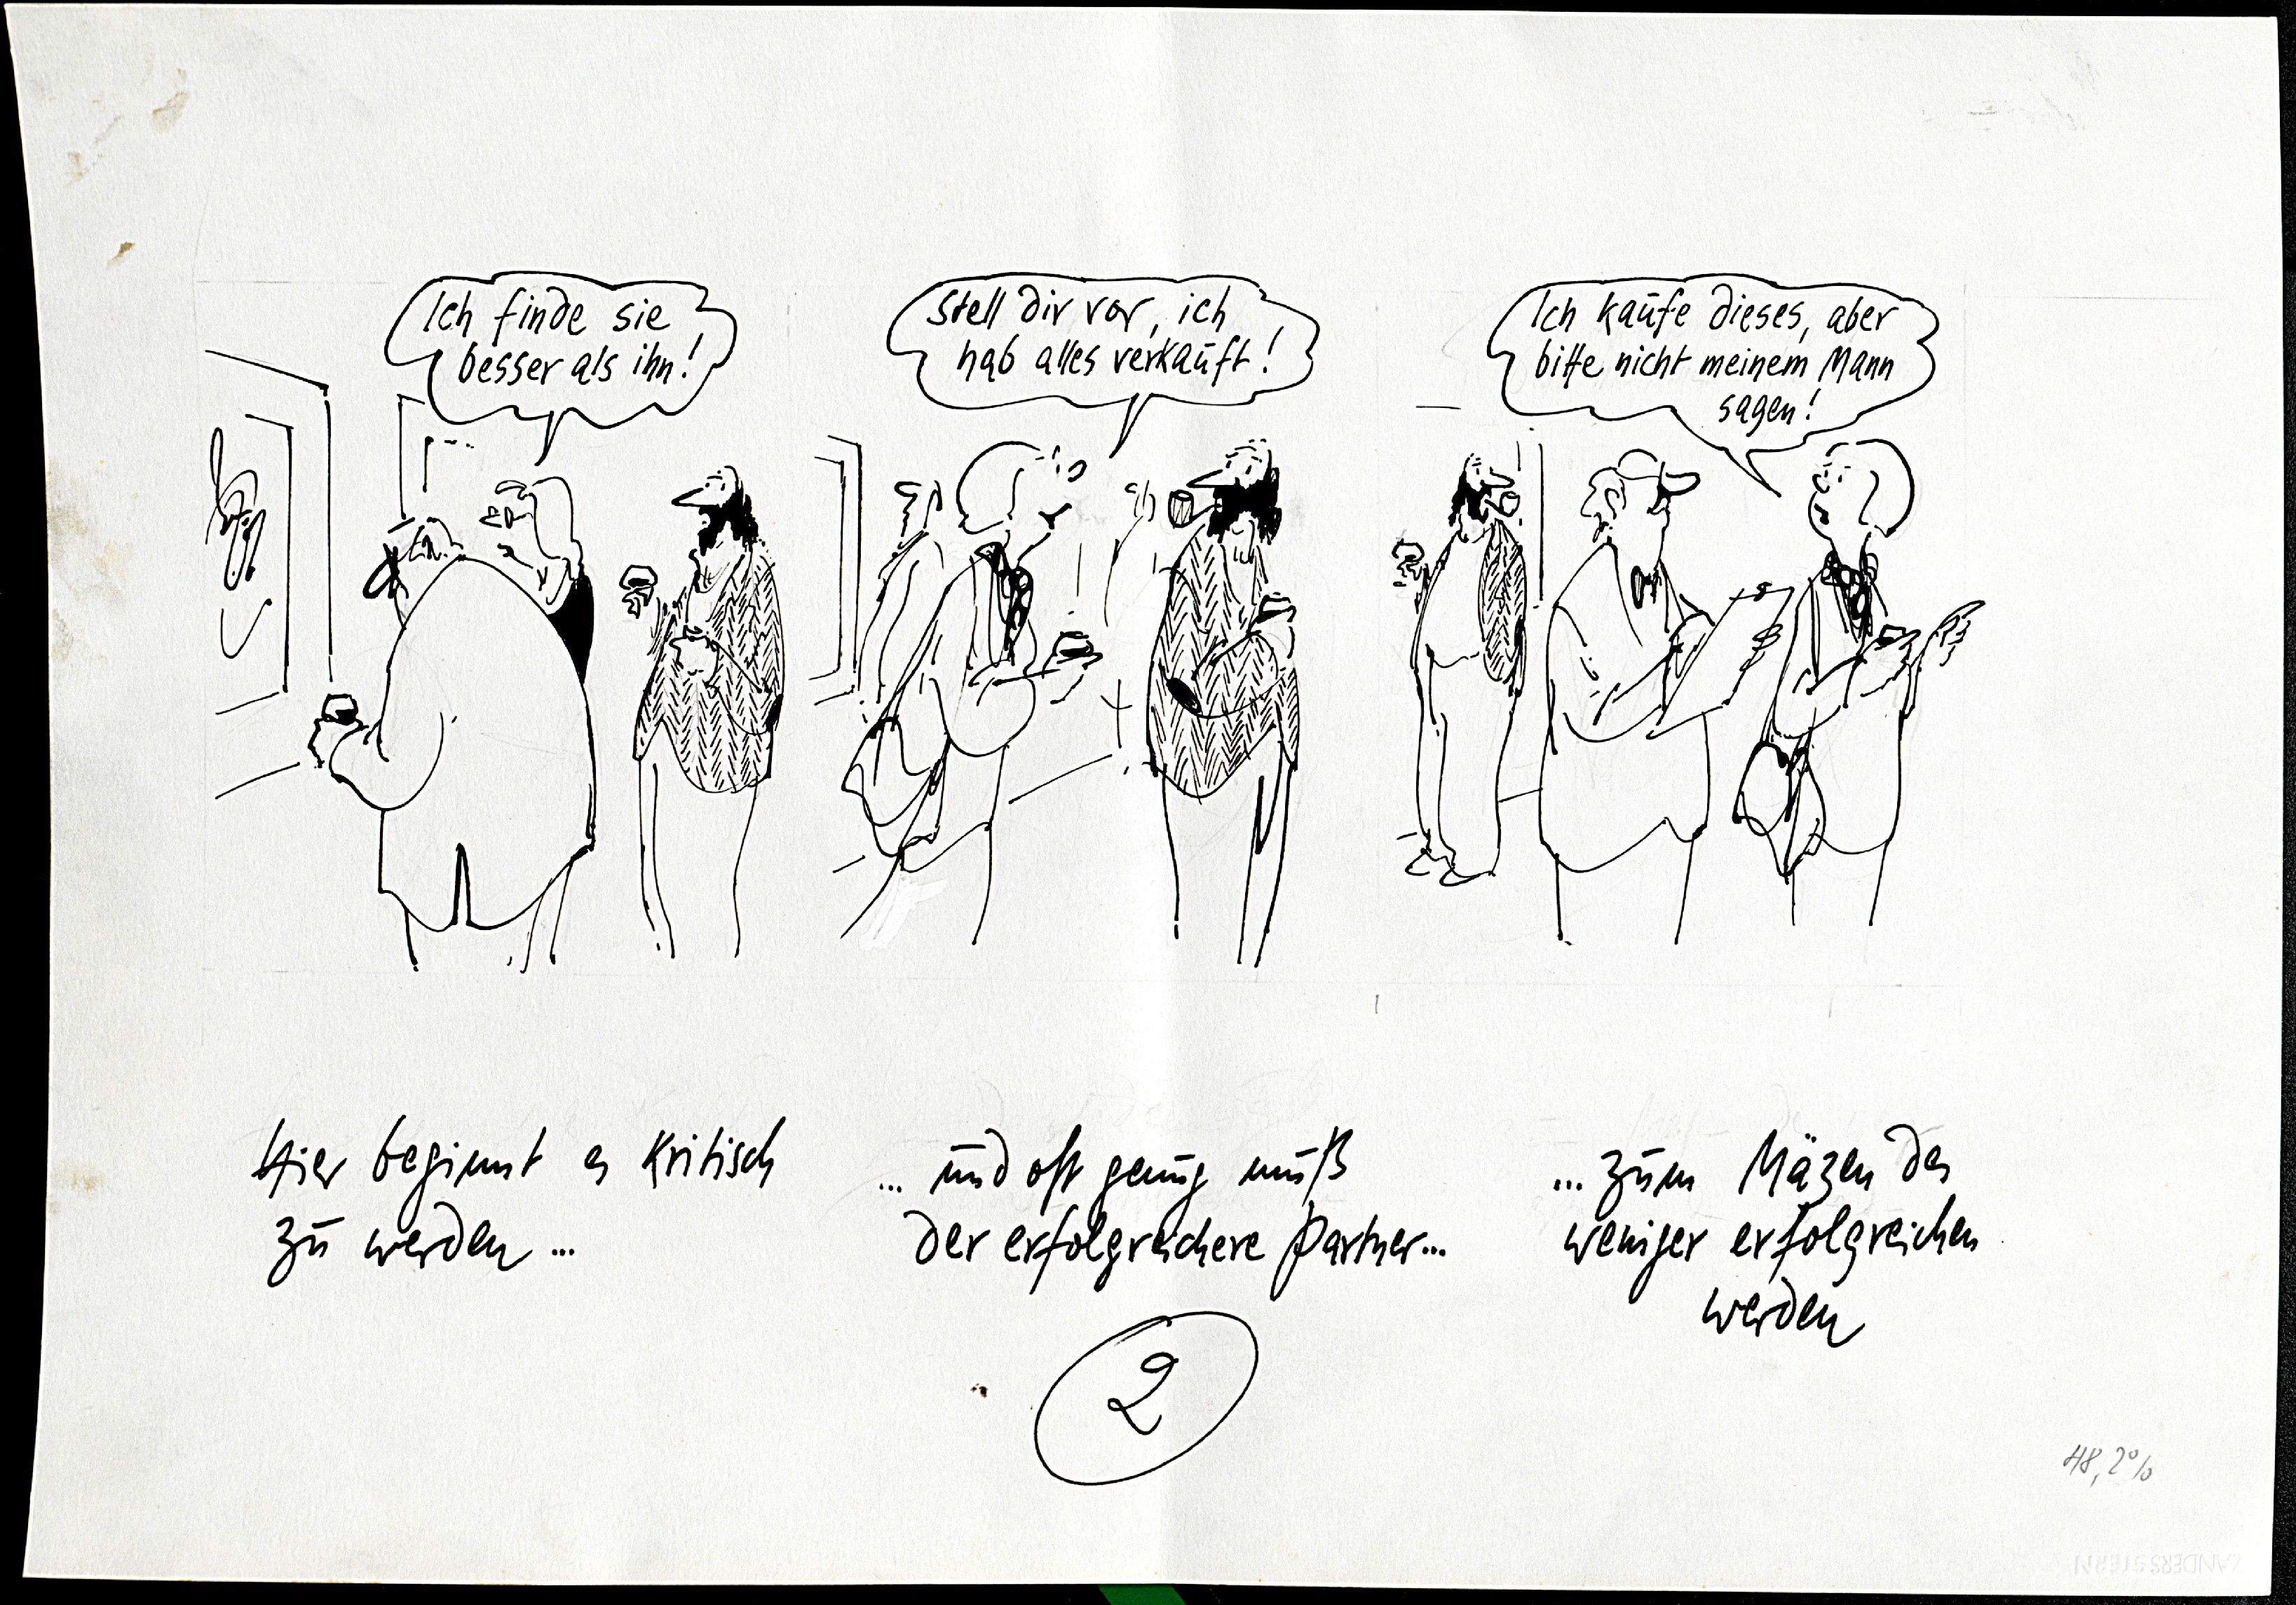 Ich finde sie
besser als ihn!
Stell dir vor, ich
hab alles verkauft!
Ich kaufe dieses, aber
bitte nicht meinem Mann
sagen!
Hier beginnt es kritisch
zu werden ...
... und oft genug muß
der erfolgreichere Partner...
... zum Mäzen des
weniger erfolgreichen
werden
2
48,2%